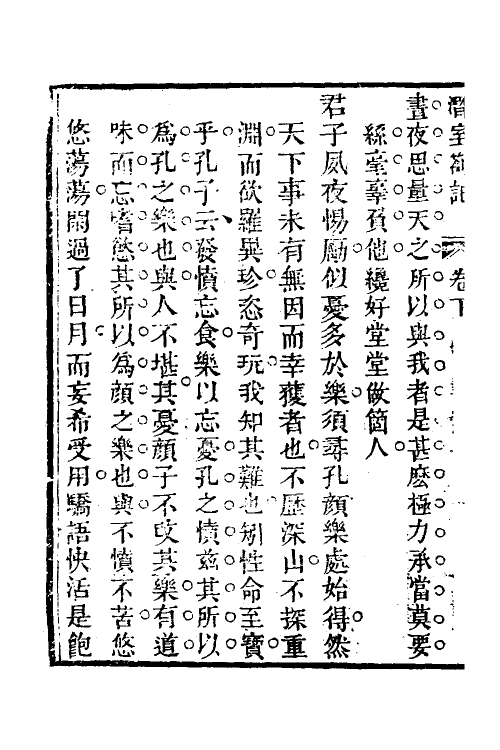 卷下
晝夜思量天之所以與我者是甚麽極力承當莫要
絲毫辜負他纔好堂堂做箇人
君子夙夜惕勵似憂多於樂須尋孔顏樂處始得然
天下事未有無因而幸獲者也不歷深山不探重
淵而欲羅異珍恣奇玩我知其難也矧性命至寶
乎孔子云發憤忘食樂以忘憂孔之憤兹其所以
為孔之樂也與人不堪其憂顏子不改其樂有道
味而忘嗜慾其所以為顏之樂也與不憤不苦悠
悠蕩蕩閒過了日月而妄希受用驕語快活是飽